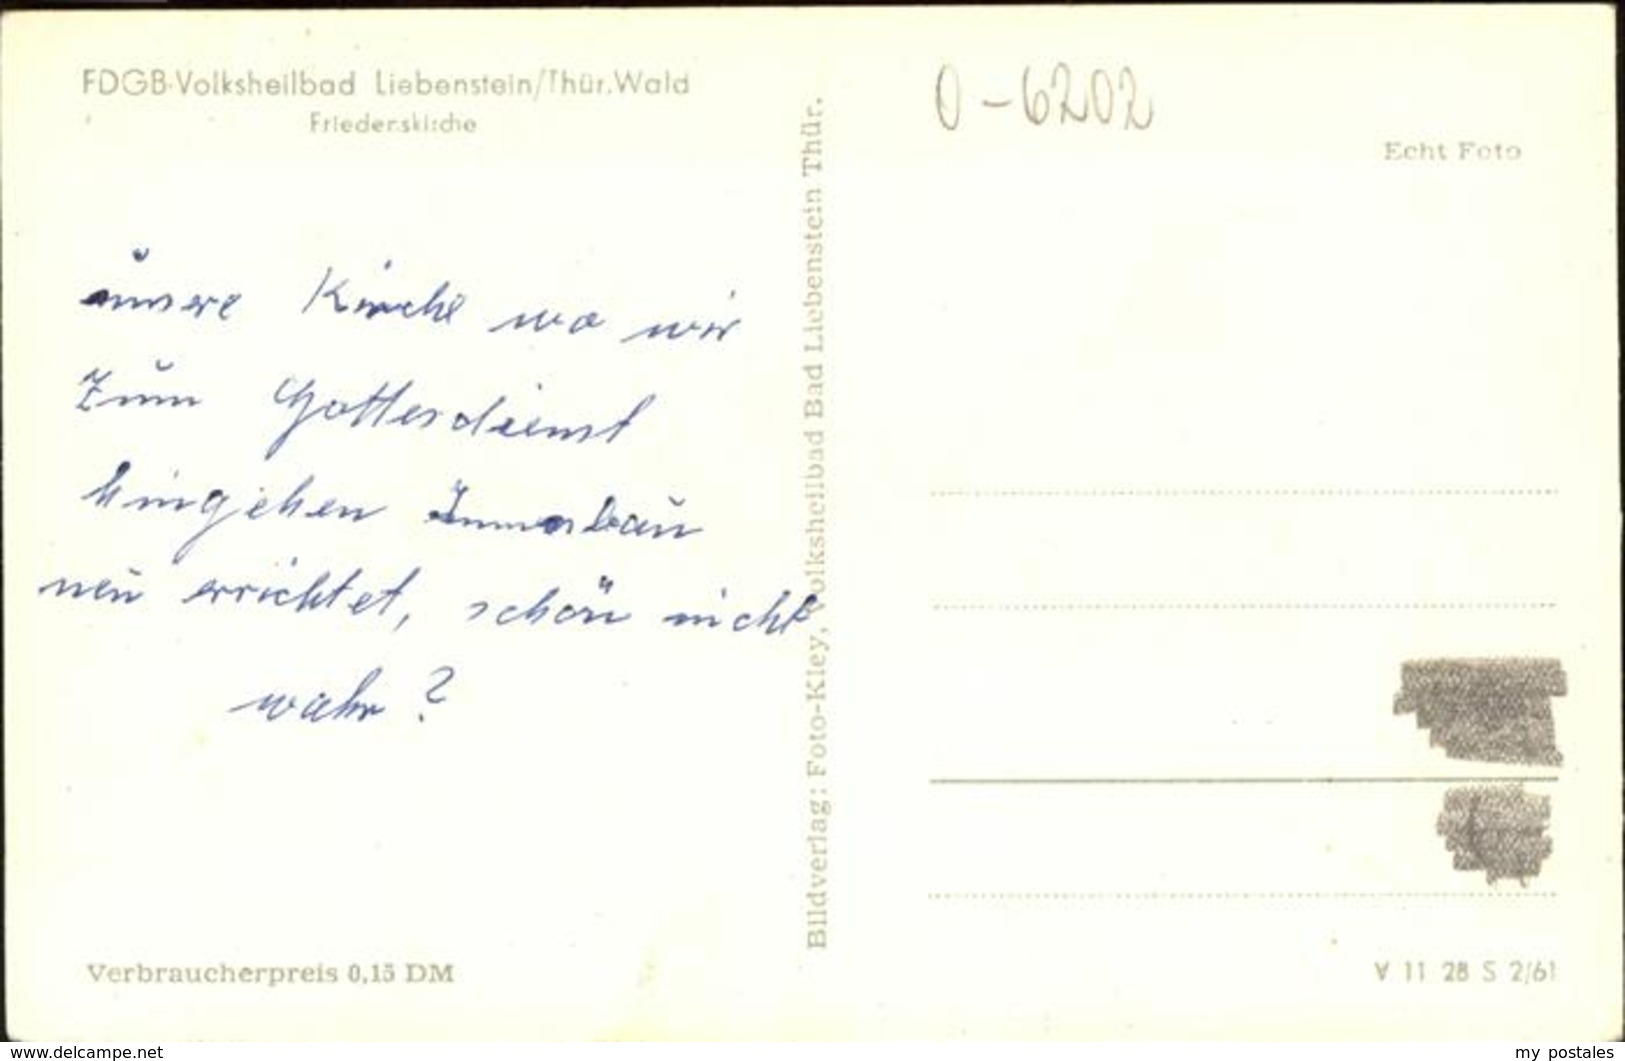 FDGB-Volksheilbad Liebenstein/Thür.Wald
Friedenskirche
unsere Kirche wo wir
zum Gottesdienst
hingehen Innenbau
neu errichtet, schön nicht
wahr?
Verbraucherpreis 0,15 DM
Bildverlag: Foto-Kley, Volksheilbad Bad Liebenstein Thür.
0-6202
Echt Foto
V 11 28 S 2/61
www.delcampe.net
my_postales